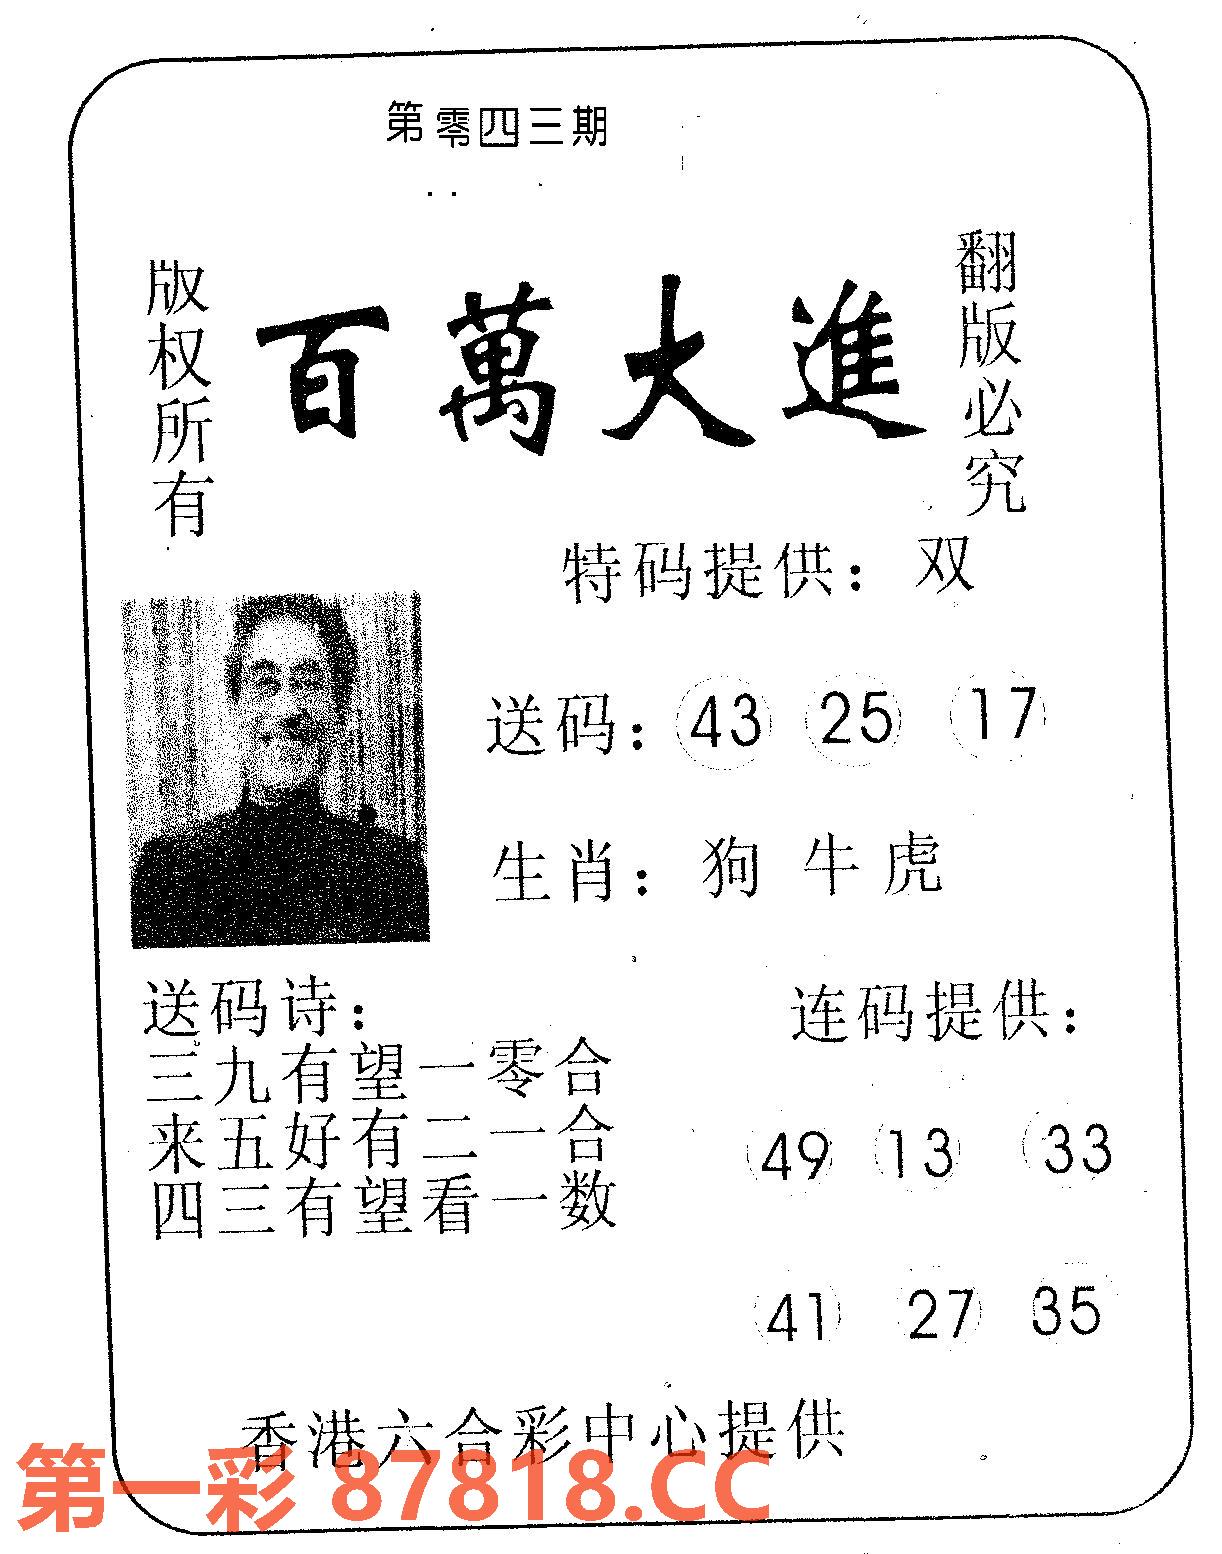 第零四三期
版权所有
百萬大進
翻版必究
特码提供：双
送码：43 25 17
生肖：狗 牛 虎
送码诗：
三九有望一零合
来五好有二一合
四三有望看一数
连码提供：
49 13 33
41 27 35
香港六合彩中心提供
第一彩 87818.CC